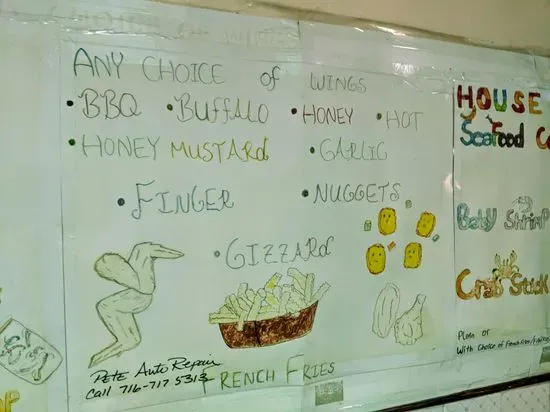 ANY CHOICE of WINGS
• BBQ • BUFFALO • HONEY • HOT
• HONEY MUSTARd • GARLIC
• FINGER • NUGGETS
• GIZZARd
PETE AUTO Repair
Call 716-717 5313
FRENCH FRIES
HOUSE
Seafood
Baby Shrimp
Crab Stick
Plain or
With Choice of